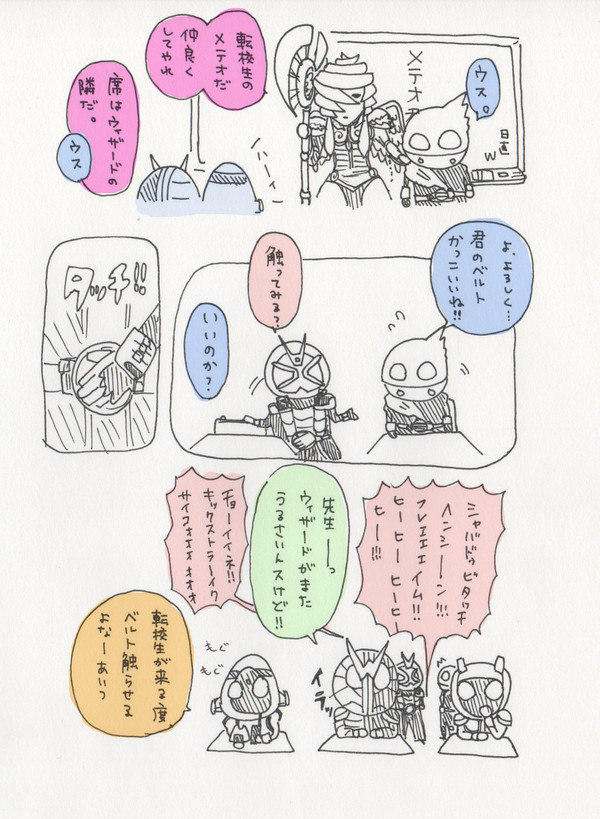 メテオ
日直
W
ウス。
転校生の
メテオだ
仲良く
してやれ
席はウィザードの
隣だ。
ウス
ハーイ
よ、よろしく…
君のベルト
かっこいいね!!
触ってみる?
いいのか?
タッチ!!
シャバドゥビタッチ
ヘンシーン!!!
フレエエエイム!!
ヒーヒー ヒーヒー
ヒー!!!
先生ーっ
ウィザードがまた
うるさいんスけど!!
チョーイイネ!!
キックストラーイク
サイコオオオオオオ
イラッ
もじ
もじ
転校生が来る度
ベルト触らせる
よなーあいつ